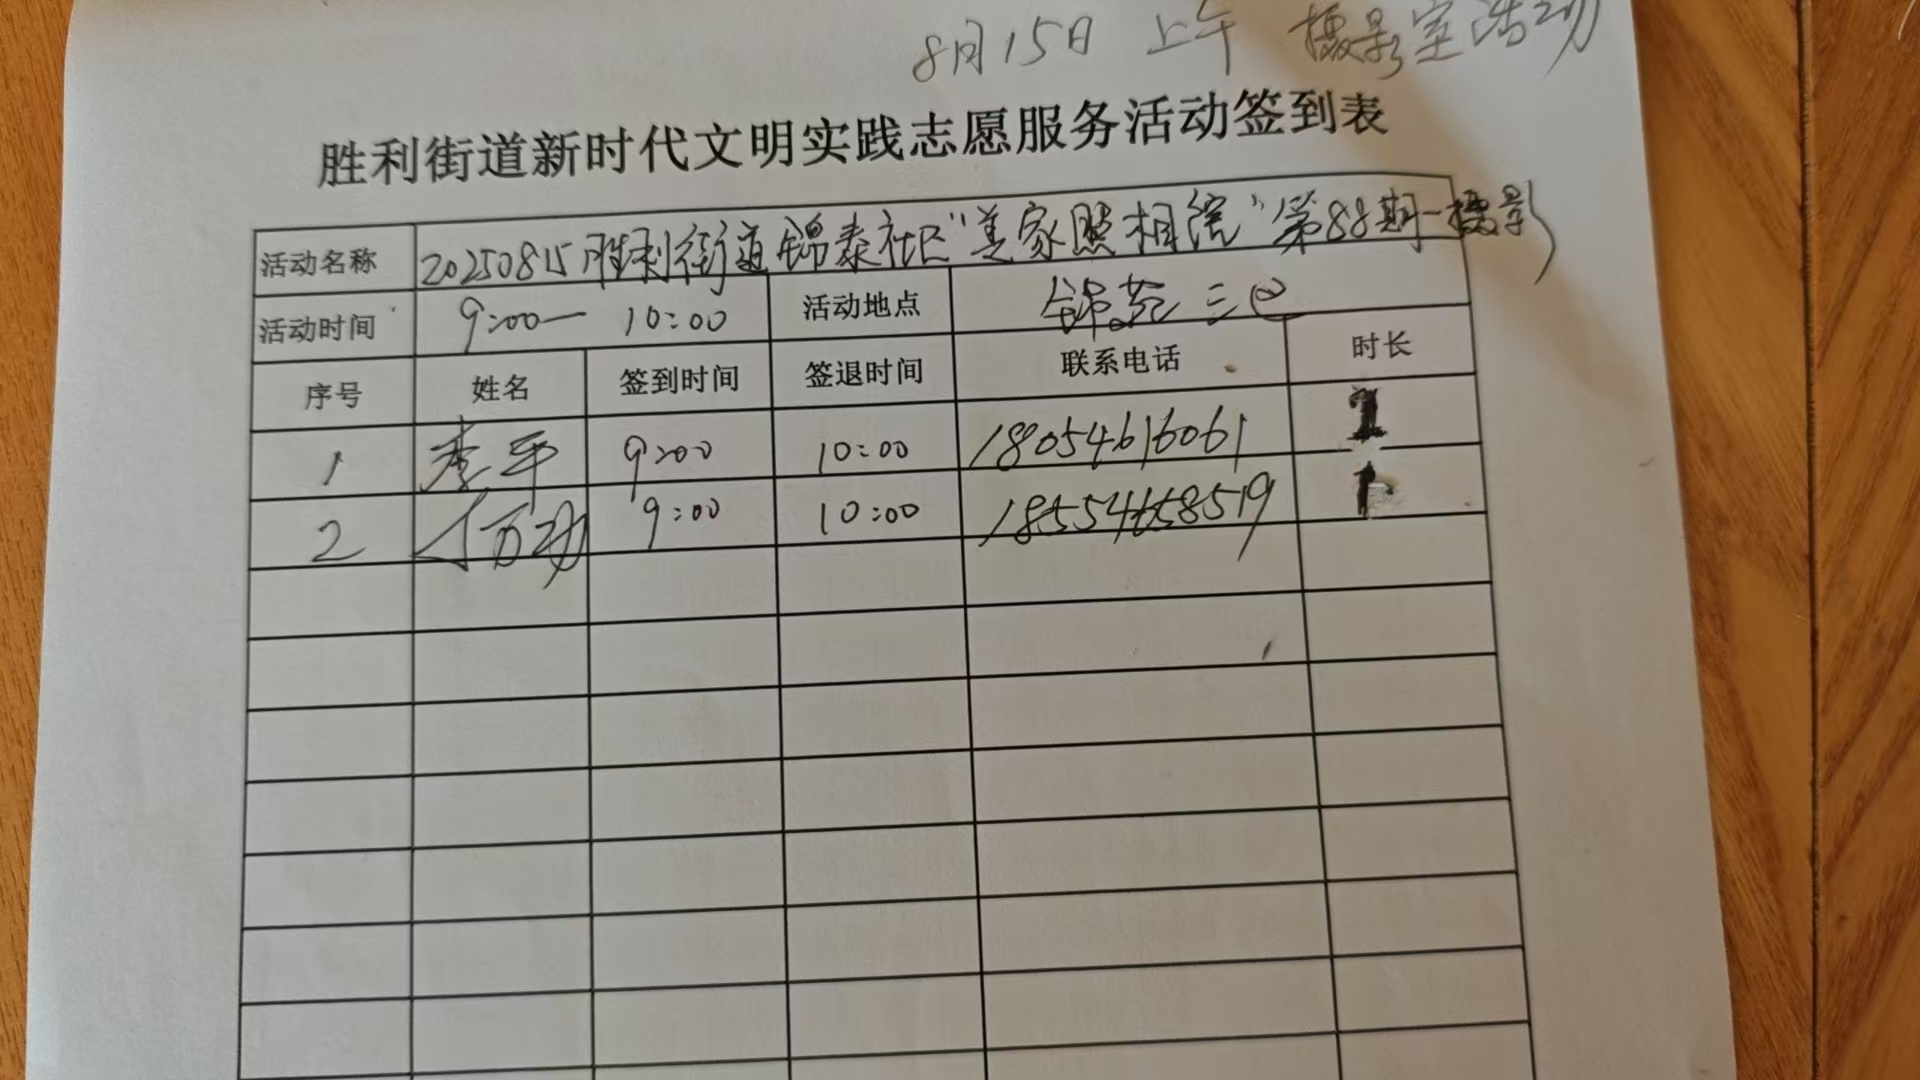 8月15日 上午 摄影室活动
胜利街道新时代文明实践志愿服务活动签到表
活动名称 20250815胜利街道锦泰社区“美家照相馆”第88期-摄影
活动时间 9:00— 10:00 活动地点 锦苑三区
序号 姓名 签到时间 签退时间 联系电话 时长
1 李平 9:00 10:00 18054616061 1
2 9:00 10:00 18554658519 1